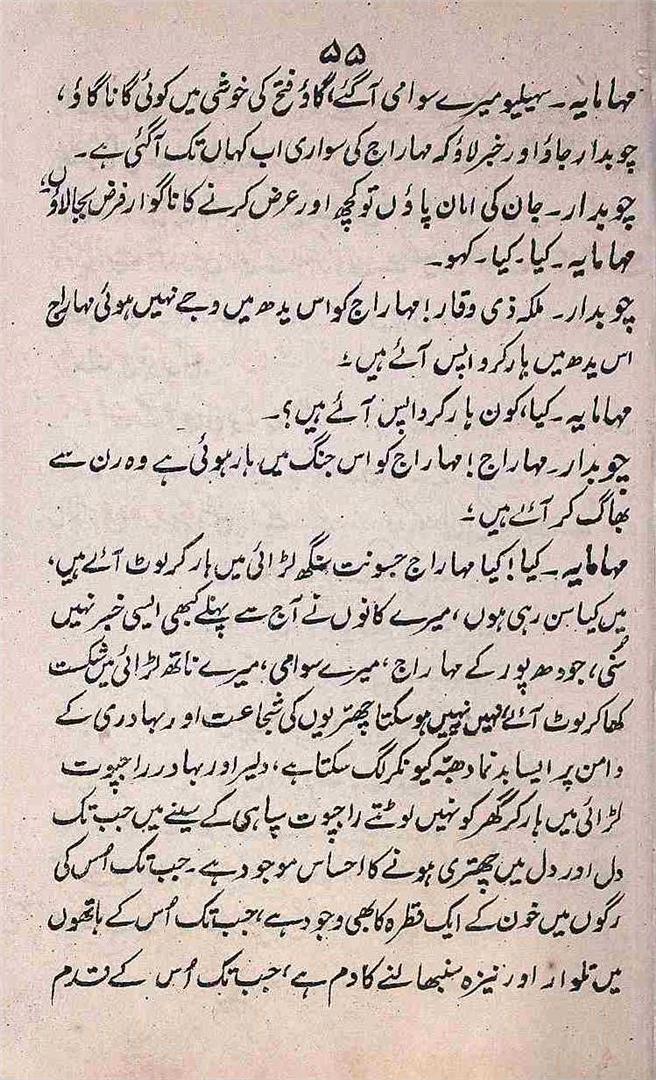 ۵۵
مہامایہ۔ سہیلیو میرے سوامی آگئے، گاؤ فتح کی خوشی میں کوئی گانا گاؤ،
چوبدار جاؤ اور خبر لاؤ کہ مہاراج کی سواری اب کہاں تک آگئی ہے۔
چوبدار۔ جان کی امان پاؤں تو کچھ اور عرض کرنے کا ناگوار فرض بجالاؤں،
مہامایہ۔ کیا۔ کیا۔ کہو۔
چوبدار۔ ملکہ ذی وقار! مہاراج کو اس یدھ میں وجے نہیں ہوئی مہاراج
اس یدھ میں ہار کر واپس آئے ہیں۔
مہامایہ۔ کیا، کون ہار کر واپس آئے ہیں؟۔
چوبدار۔ مہاراج! مہاراج کو اس جنگ میں ہار ہوئی ہے وہ رن سے
بھاگ کر آئے ہیں۔
مہامایہ۔ کیا! کیا مہاراج جسونت سنگھ لڑائی میں ہار کر لوٹ آئے ہیں،
میں کیا سن رہی ہوں، میرے کانوں نے آج سے پہلے کبھی ایسی خبر نہیں
سُنی، جودھ پور کے مہاراج، میرے سوامی، میرے ناتھ لڑائی میں شکست
کھا کر لوٹ آئے، نہیں نہیں ہوسکتا چھتریوں کی شجاعت اور بہادری کے
دامن پر ایسا بدنما دھبّہ کیونکر لگ سکتا ہے، دلیر اور بہادر راجپوت
لڑائی میں ہار کر گھر کو نہیں لوٹتے راجپوت سپاہی کے سینے میں جب تک
دل اور دل میں چھتری ہونے کا احساس موجود ہے۔ جب تک اُس کی
رگوں میں خون کے ایک قطرہ کا بھی وجود ہے، جب تک اُس کے ہاتھوں
میں تلوار اور نیزہ سنبھالنے کا دم ہے، جب تک اُس کے قدم